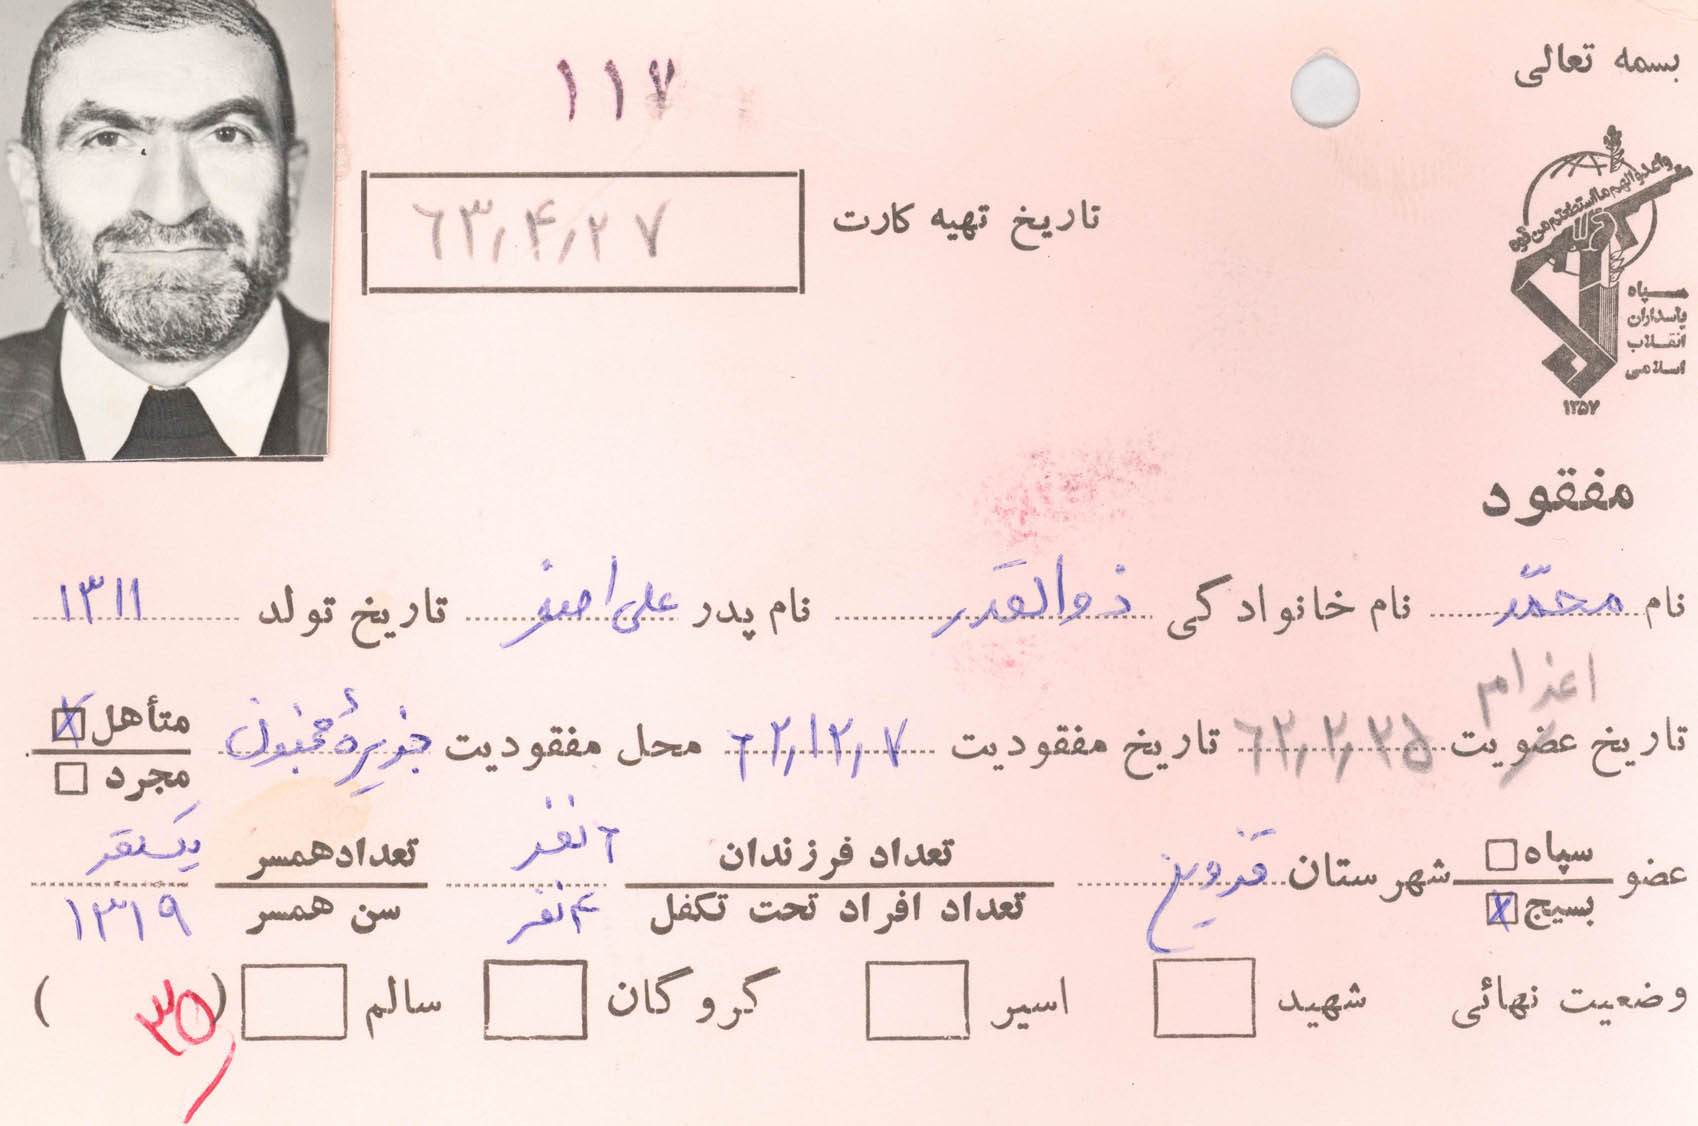 بسمه تعالی
۱۱۷
تاریخ تهیه کارت ۶۳/۴/۲۷
واعدوا لهم ما استطعتم من قوة
سپاه
پاسداران
انقلاب
اسلامی
۱۳۵۷
مفقود
نام محمّد نام خانوادگی ذوالقدر نام پدر علی اصغر تاریخ تولد ۱۳۱۱
اعزام
تاریخ عضویت ۶۲/۲/۲۵ تاریخ مفقودیت ۶۲/۱۲/۷ محل مفقودیت جزیرهٔ مجنون متأهل x
مجرد
عضو سپاه شهرستان قزوین تعداد فرزندان ۶ نفر تعداد همسر یکنفر
بسیج x تعداد افراد تحت تکفل ۴ نفر سن همسر ۱۳۱۹
وضعیت نهائی شهید اسیر گروگان سالم ( ۳۵ )